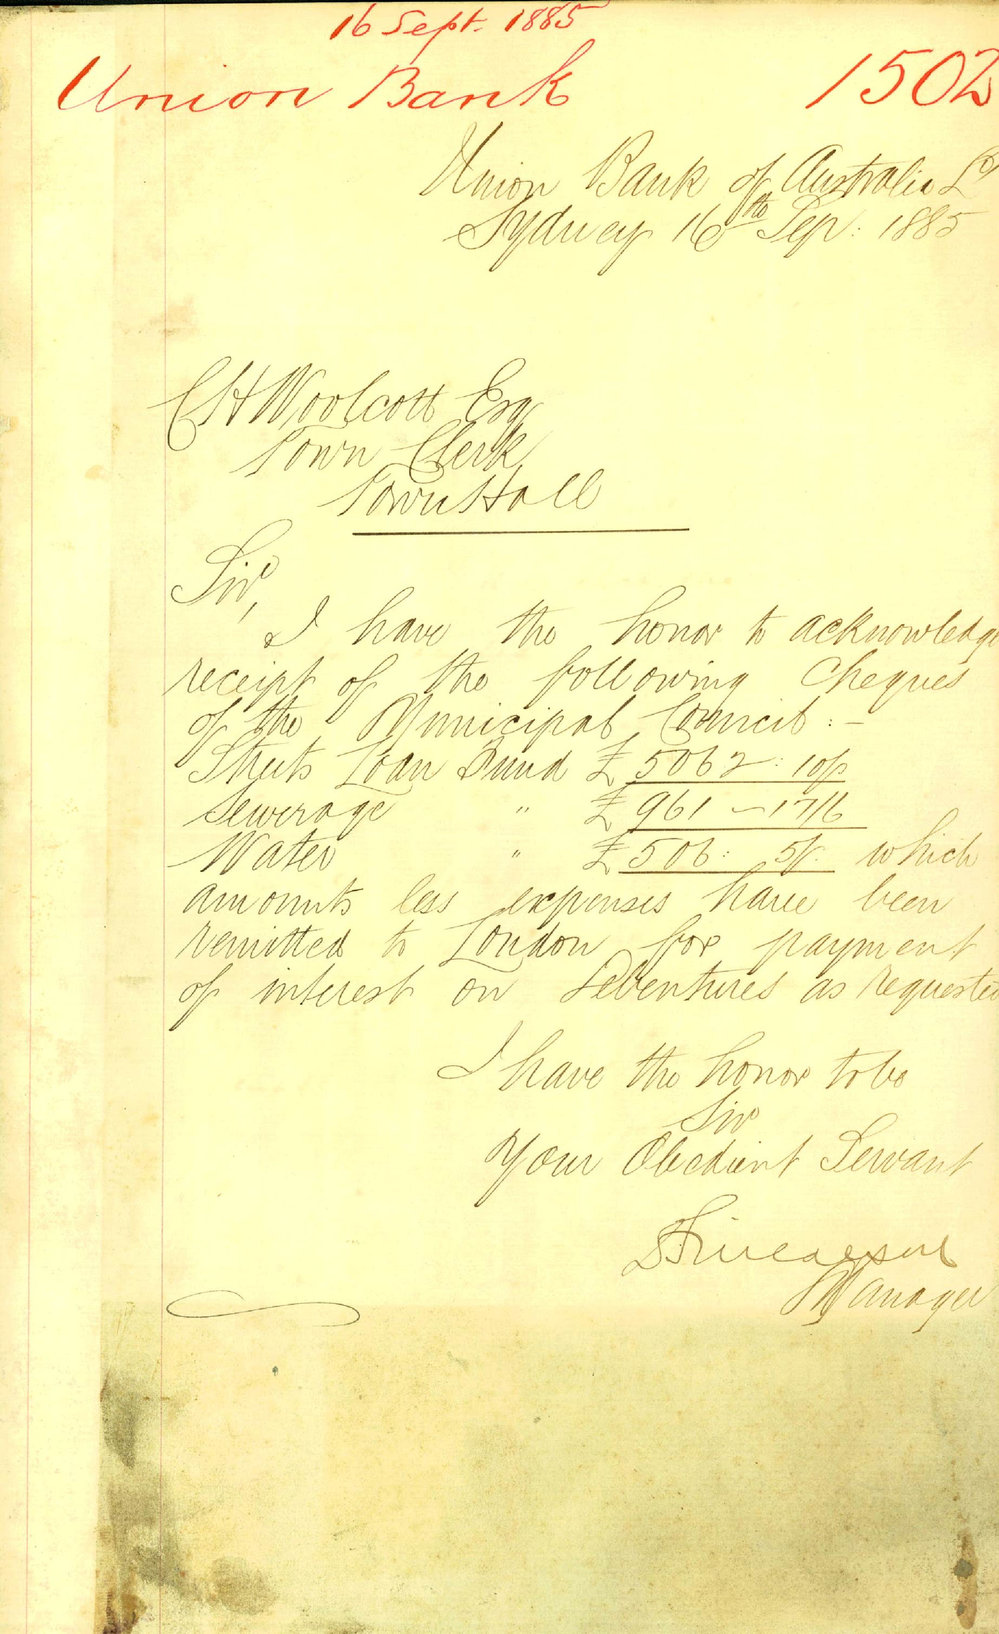 16 Sept. 1885
Union Bank 1502
Union Bank of Australia Ld
Sydney 16th Sep: 1885
C H Woolcott Esq
Town Clerk
Town Hall
Sir,
I have the honor to acknowledge
receipt of the following Cheques
of the Municipal Council:-
Streets Loan Fund £5062:10/-
Sewerage " £961-17/6
Water " £506: 5/- which
amounts less expenses have been
remitted to London for payment
of interest on Debentures as requested
I have the honor to be
Sir
Your Obedient Servant
Manager